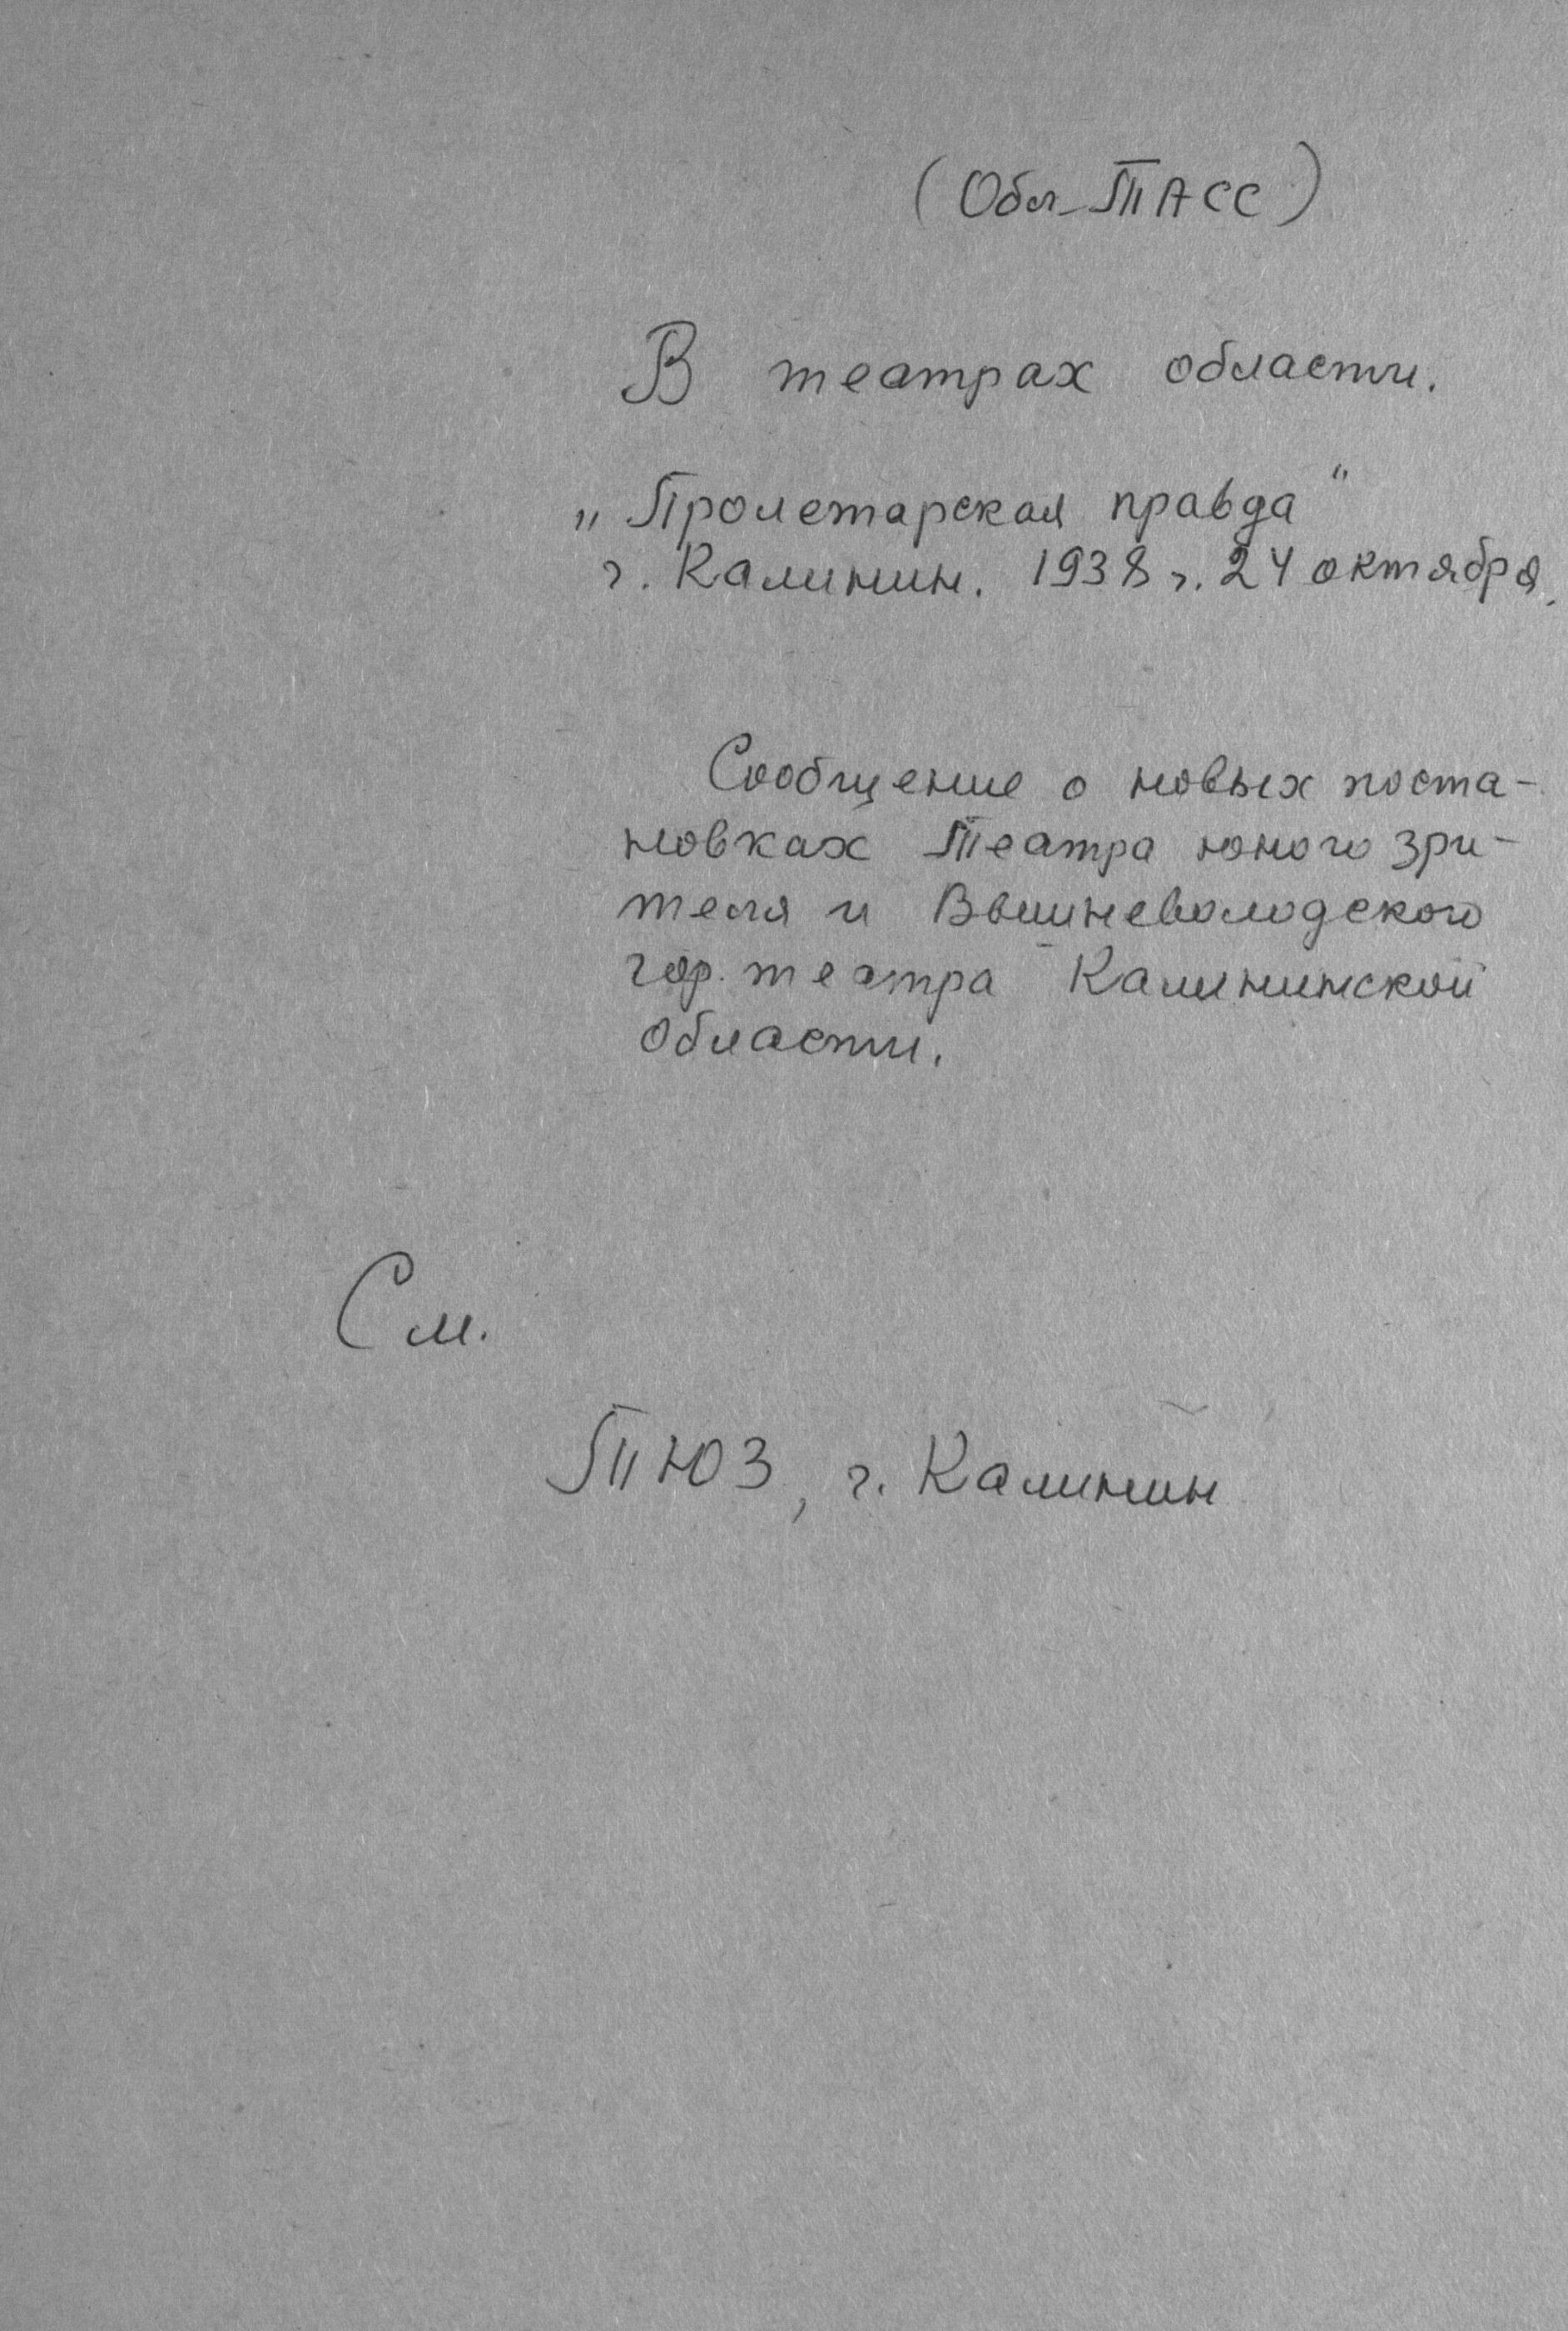 (Обл-ТАСС)
В театрах области.
„Пролетарская правда"
г. Калинин. 1938 г. 24 октября.
Сообщение о новых поста-
новках Театра юного зри-
теля и Вышневолодского
гор. театра Калининской
области.
См.
ТЮЗ, г. Калинин